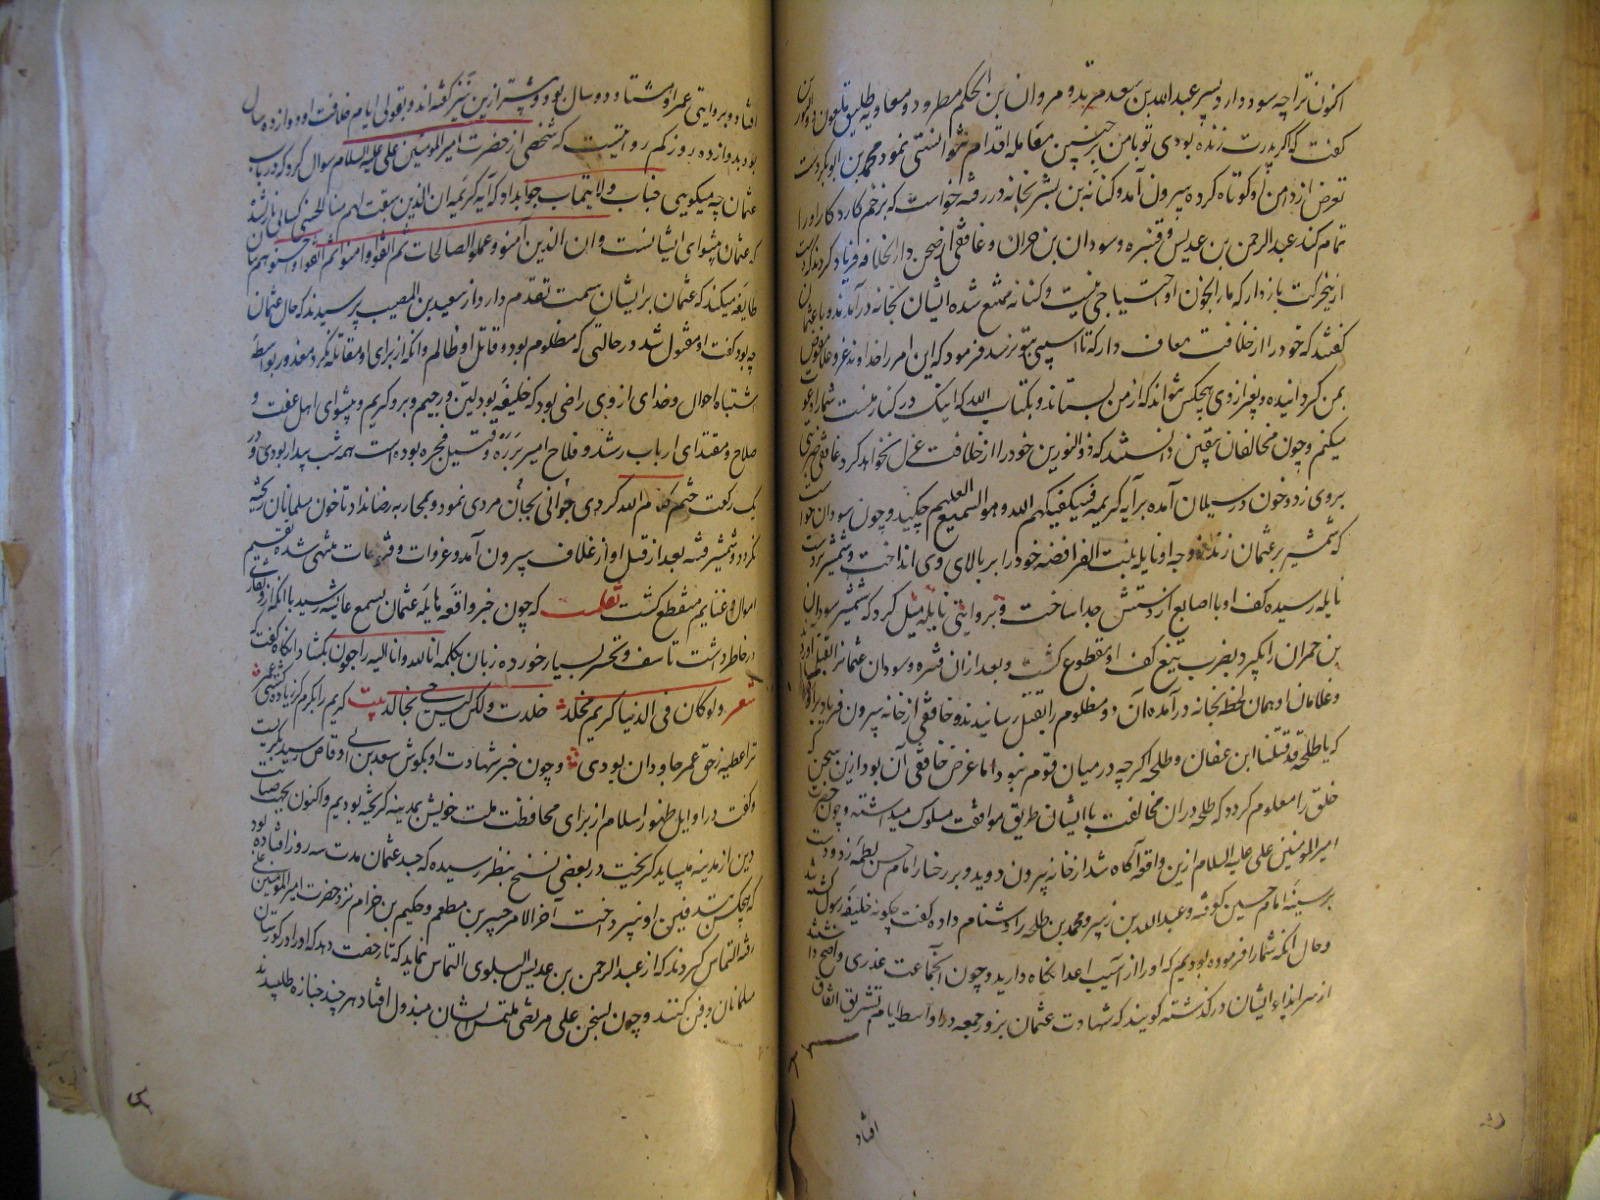 اکنون ترا چه سود دارد پسر عبدالله بن سعد مرتد و مروان بن الحکم مطرود و معاویه طلیق
کفت که اکر پدرت زنده بودی تو با من چنین معامله اقدام نتوانستی نمود محمد بن ابو بکر دست
تعرض از دامن او کوتاه کرده بیرون آمد و کنانه بن بشر بخانه در رفته خواست که بزخم کارد کار او را
تمام کند عبدالرحمن بن عدیس و قتیره و سودان بن حمران و غافقی از صحن دار الخلافه فریاد کردند که
ازین حرکت باز دار که ما را بخون او احتیاجی نیست و کنانه ممتنع شده ایشان بخانه در آمدند و با عثمان
کفتند که خود را از خلافت معاف دار که تا آسیبی بتو نرسد فرمود که این امر را خداوند عز و علا مفوض
بمن کردانیده و بغیر از وی هیچکس نتواند که از من بستاند و بکتاب الله که اینک در کنار منست شما را دعوت
میکنم و چون مخالفان بیقین دانستند که ذو النورین خود را از خلافت عزل نخواهد کرد غافقی ضربتی
بروی زد و خون در سیلان آمده بر آیه کریمه فسیکفیکهم الله و هو السمیع العلیم چکید و چون سودان خواست
که شمشیر بر عثمان زند زوجه او نایله بنت الفرافصه خود را بر بالای وی انداخت و شمشیر بدست
نایله رسیده کف او با اصابع از دستش جدا ساخت و بروایتی نایله میل کرد که شمشیر سودان
بن حمران را بکیرد بضرب تیغ کف او مقطوع کشت و بعد از ان قتیره و سودان عثمانرا بقتل آوردند
و غلامان او همان لحظه بخانه در آمده آن دو مظلوم را بقتل رسانیدند و غافقی از خانه بیرون فریاد برآورد
که یا طلحه قد قتلنا ابن عفان و طلحه اکرچه در میان قوم نبود اما غرض غافقی آن بود ازین سخن که
خلق را معلوم کردد که طلحه دران مخالفت با ایشان طریق موافقت مسلوک میداشته و چون حضرت
امیر المومنین علی علیه السلام ازین واقعه آکاه شد از خانه بیرون دوید و بر رخسار امام حسن لطمه زد و دست
بر سینه امام حسین کوفته و عبدالله بن زبیر و محمد بن طلحه را دشنام داده کفت چکونه خلیفه رسول کشته شد
و حال انکه شما را فرموده بودیم که او را از آسیب اعدا نکاه دارید و چون آنجماعت عذری واضح داشتند
از سر ایذاء ایشان در کذشته کویند که شهادت عثمان بروز جمعه در اواسط ایام تشریق اتفاق
افتاد
افتاد و بروایتی عمر او هشتاد و دو سال بود و پیشتر ازین نیز کفته اند و بقولی ایام خلافت او دوازده سال
بود بدوازده روز کم روایتست که شخصی از حضرت امیر المومنین علی علیه السلام سوال کرد که در باب
عثمان چه میکویی جناب ولایتماب جواب داد که آیه کریمه ان الذین سبقت لهم منا الحسنی
که عثمان پیشوای ایشانست و ان الذین آمنوا و عملوا الصالحات ثم اتقوا و امنوا ثم اتقوا و احسنوا هم
طایفه میکند که عثمان بر ایشان سمت تقدم دارد از سعید بن المصیب پرسیدند که حال عثمان
چه بود کفت او مقتول شد در حالتی که مظلوم بود و قاتل او ظالم و انکه از برای او مقاتله نکرد معذور بواسطه
اشتباه احوال و خدای از وی راضی بود که خلیفه بود لین و رحیم و بر و کریم و پیشوای اهل عفت و
صلاح و مقتدای ارباب رشد و فلاح امیر برره و قتیل فجره بوده است همه شب بیدار بودی و در
یک رکعت ختم کلام الله کردی جوانی بجان مردی نمود و بمحاربه رضا نداد تا خون مسلمانان ریخته
نکردد و شمشیر فتنه بعد از قتل او از غلاف بیرون آمد و غزوات و فتوحات منتهی شده تقسیم
اموال و غنایم منقطع کشت نقلست که چون خبر واقعه هایله عثمان بسمع عایشه رسید با انکه ازو نقاری
در خاطر داشت تاسف و تحسر بسیار خورده زبان بکلمه انا لله و انا الیه راجعون بکشاد انکاه کفت که
شعر ولو کان فی الدنیا کریم مخلد خلدت ولکن لیس حی بخالد بیت کریم را بکرم کر زیاده کشتی عمر
ترا عطیه ز حق عمر جاودان بودی و چون خبر شهادت او بکوش سعد بن ابی وقاص رسید بکریست
و کفت در اوایل ظهور اسلام از برای محافظت ملت خویش بمدینه کریخته بودیم و اکنون بجهت صیانت
دین از مدینه میباید کریخت در بعضی نسخ بنظر رسیده که جسد عثمان مدت سه روز افتاده بود
که هیچکس بتدفین او نپرداخت آخر الامر جبیر بن مطعم و حکیم بن حزام نزد حضرت امیر المومنین علی
رفته التماس کردند که از عبدالرحمن بن عدیس البلوی التماس نماید که تا رخصت دهد که او را در کورستان
مسلمانان دفن کنند و چون بسخن علی مرتضی ملتمس ایشان مبذول افتاد هر چند جنازه طلبیدند